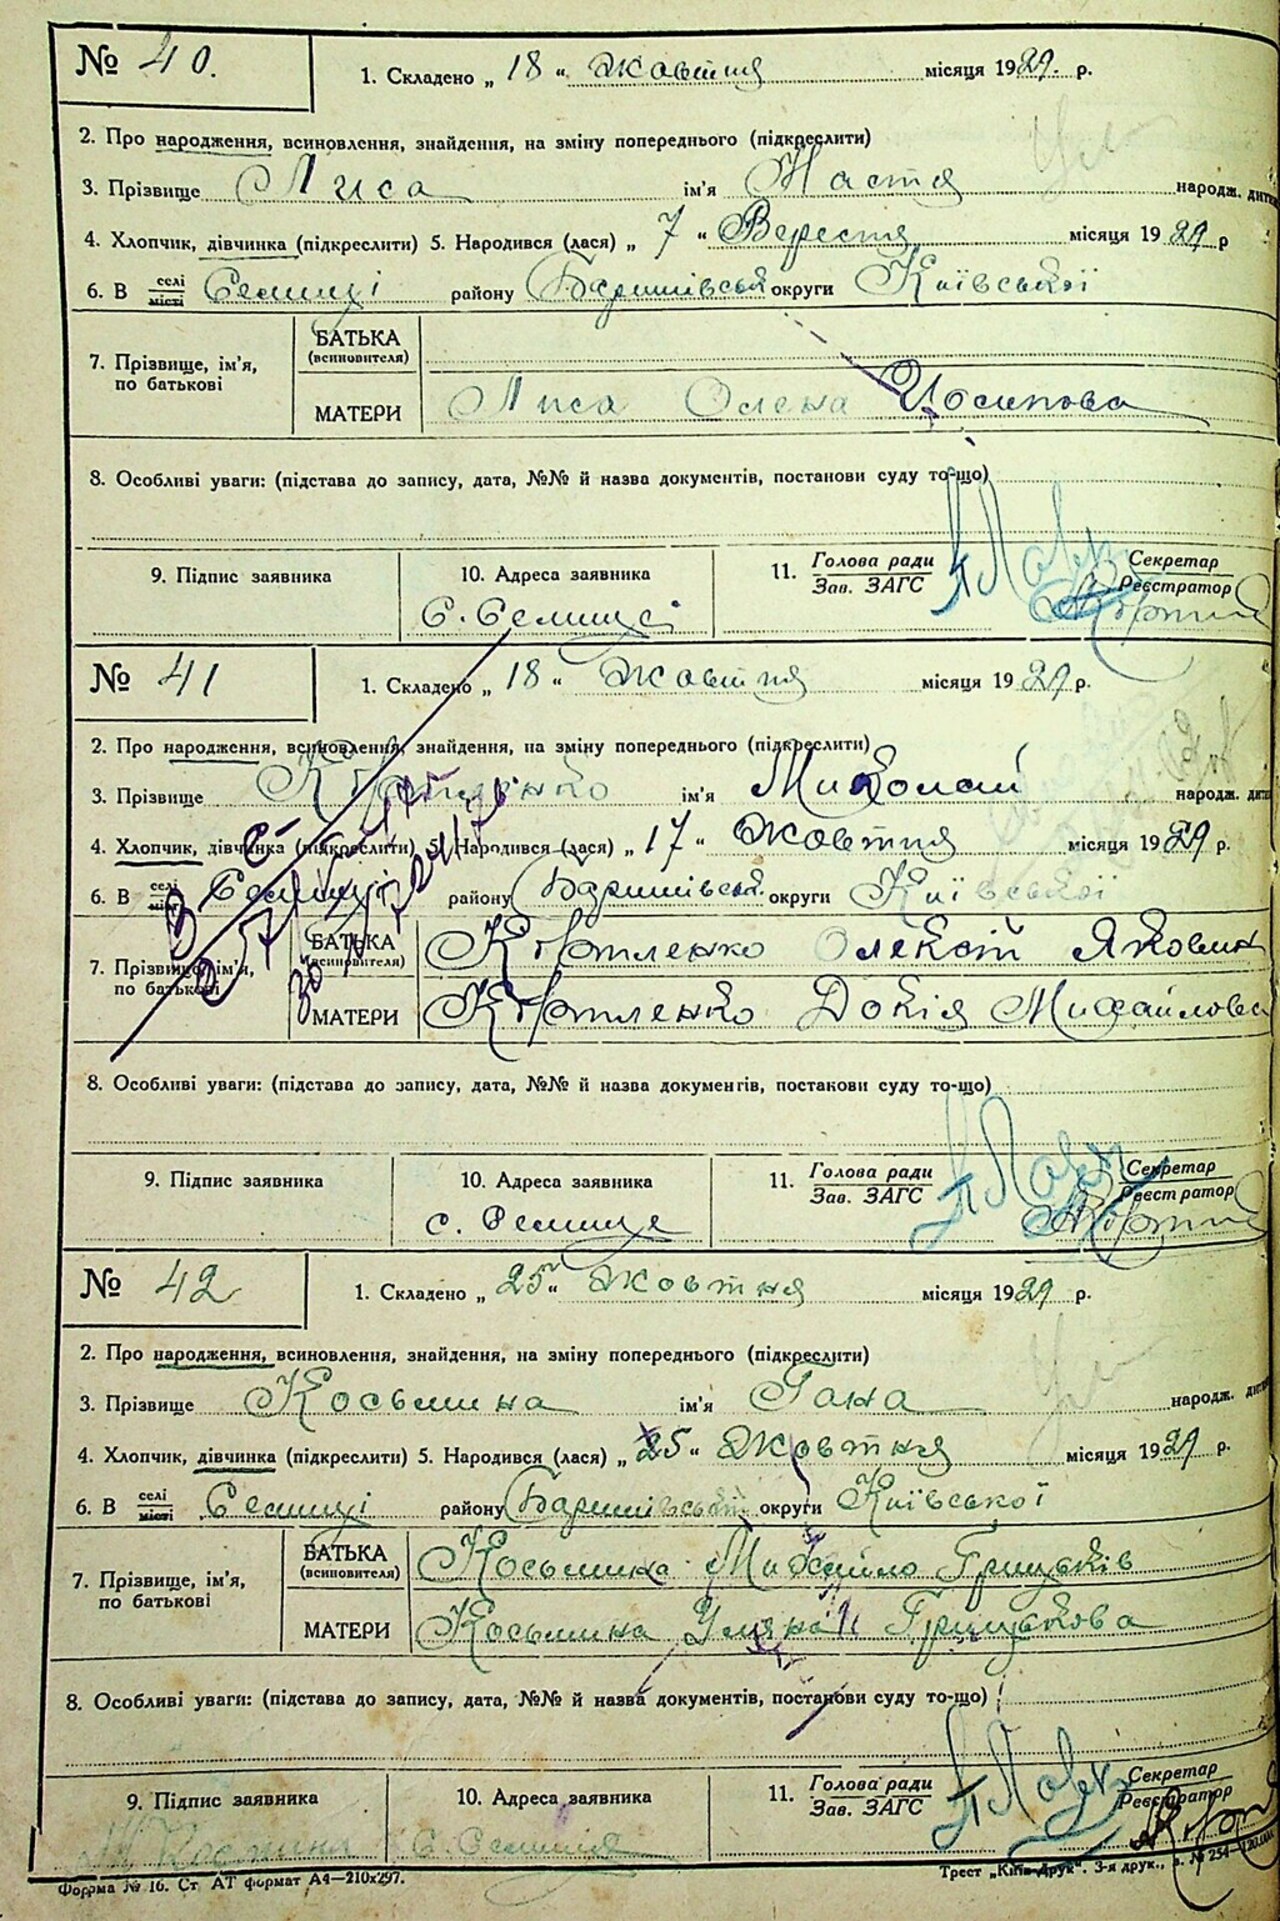 № 40. 1. Складено „ 18 “ Жовтня місяця 1929. р.
2. Про народження, всиновлення, знайдення, на зміну попереднього (підкреслити)
3. Прізвище Лиса ім'я Настя народж. дитин
4. Хлопчик, дівчинка (підкреслити) 5. Народився (лася) „ 7 “ Вересня місяця 1929 р
6. В селі місті Селищі району Баришівськ округи Київської
7. Прізвище, ім'я, по батькові
БАТЬКА (всиновителя)
МАТЕРИ Лиса Олена Йосипова
8. Особливі уваги: (підстава до запису, дата, №№ й назва документів, постанови суду то-що)
9. Підпис заявника 10. Адреса заявника 11. Голова ради Зав. ЗАГС Секретар Реєстратор
с. Селище
№ 41 1. Складено „ 18 “ Жовтня місяця 1929 р.
2. Про народження, всиновлення, знайдення, на зміну попереднього (підкреслити)
3. Прізвище ім'я Миколай народж. дити
4. Хлопчик, дівчинка (підкреслити) 5. Народився (лася) „ 17 “ Жовтня місяця 1929 р.
6. В селі місті Селищі району Баришівськ. округи Київської
7. Прізвище, ім'я, по батькові
БАТЬКА (всиновителя) Олексій Яковин
МАТЕРИ Докія Михайлова
8. Особливі уваги: (підстава до запису, дата, №№ й назва документів, постанови суду то-що)
9. Підпис заявника 10. Адреса заявника 11. Голова ради Зав. ЗАГС Секретар Реєстратор
с. Селище
№ 42 1. Складено „ 25 “ Жовтня місяця 1929 р.
2. Про народження, всиновлення, знайдення, на зміну попереднього (підкреслити)
3. Прізвище Косьмина ім'я Гана народж. дити
4. Хлопчик, дівчинка (підкреслити) 5. Народився (лася) „ 25 “ Жовтня місяця 1929 р.
6. В селі місті Селищі району Баришівськ округи Київської
7. Прізвище, ім'я, по батькові
БАТЬКА (всиновителя) Косьмина Михайло Грицьків
МАТЕРИ Косьмина Уляна Грицькова
8. Особливі уваги: (підстава до запису, дата, №№ й назва документів, постанови суду то-що)
9. Підпис заявника 10. Адреса заявника 11. Голова ради Зав. ЗАГС Секретар Реєстратор
М Космина с. Селище
Форма № 16. Ст. АТ формат А4—210х297. Трест „Київ-Друк“. 3-я друк., з. № 254—120.000